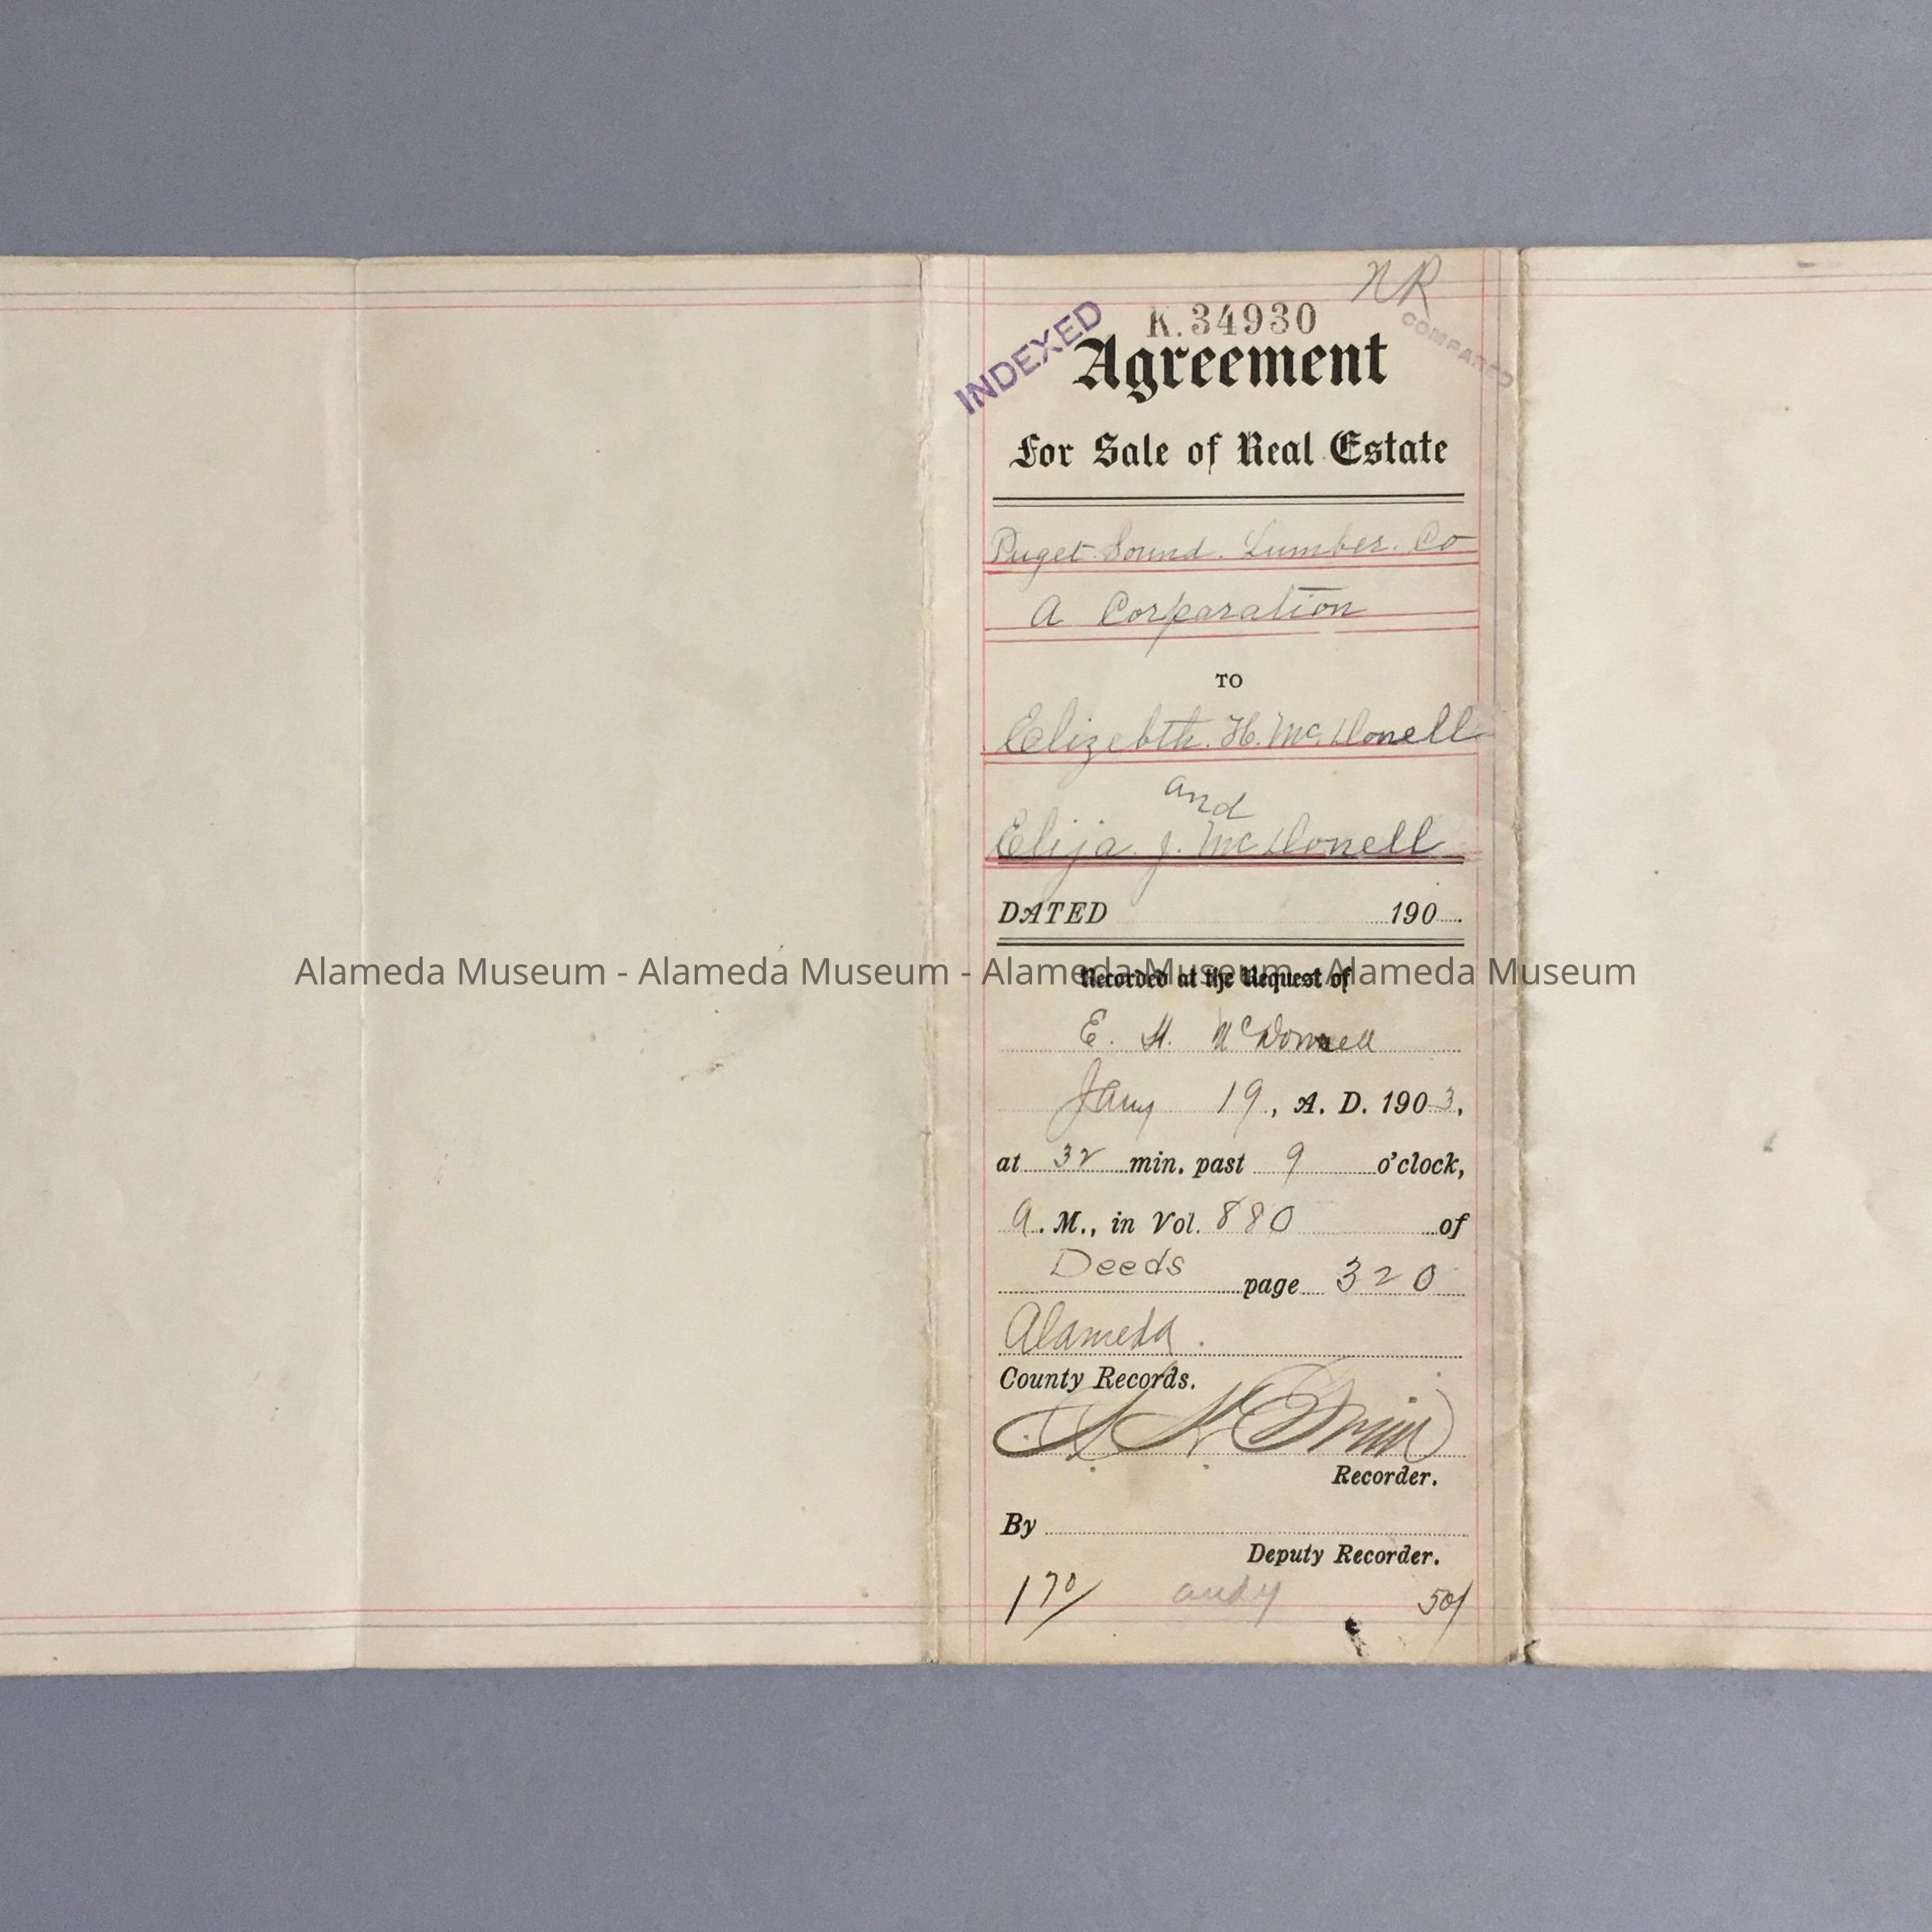 NR
K.34930
INDEXED
COMPARED
Agreement
For Sale of Real Estate
Puget Sound. Lumber. Co
A Corparation
TO
Elizebth. H. McDonell
and
Elija. J. McDonell
DATED 190
Alameda Museum - Alameda Museum - Alameda Museum - Alameda Museum
Recorded at the Request of
E. H. McDonnell
Jany 19, A. D. 1903,
at 32 min. past 9 o'clock,
A. M., in Vol. 880 of
Deeds page 320
Alameda.
County Records.
Recorder.
By
Deputy Recorder.
170/ andy 50/